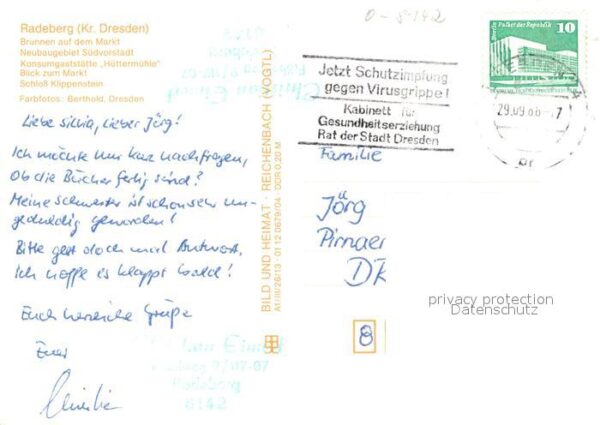 Radeberg (Kr. Dresden)
Brunnen auf dem Markt
Neubaugebiet Südvorstadt
Konsumgaststätte „Hüttermühle"
Blick zum Markt
Schloß Klippenstein
Farbfotos: Berthold, Dresden
Liebe Silvia, lieber Jörg!
Ich möchte nur kurz nachfragen,
Ob die Bücher fertig sind?
Meine Schwester ist schon sehr un-
geduldig geworden!
Bitte gebt doch mal Antwort.
Ich hoffe es klappt bald!
Euch herzliche Grüße
Euer
BILD UND HEIMAT · REICHENBACH (VOGTL)
A1/III/26/13 · 01 12 0679/04 DDR 0,20 M
0-8142
Jetzt Schutzimpfung
gegen Virusgrippe!
Kabinett für
Gesundheitserziehung
Rat der Stadt Dresden
Berlin, Palast der Republik
10
DDR
29.09.86-7
Familie
Jörg
Pirnaer
8
privacy protection
Datenschutz
8142